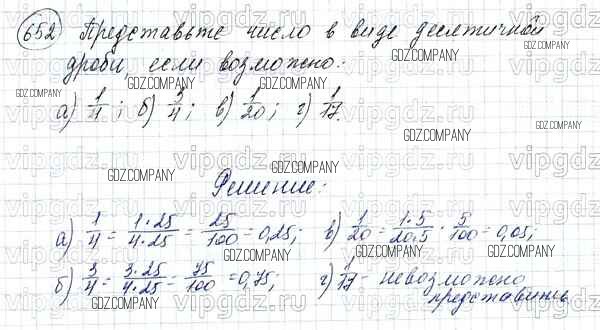 652 Представьте число в виде десятичной
дроби, если возможно:
а) 1/4; б) 3/4; в) 1/20; г) 1/17.
Решение:
а) 1/4 = 1·25/4·25 = 25/100 = 0,25; в) 1/20 = 1·5/20·5 = 5/100 = 0,05;
б) 3/4 = 3·25/4·25 = 75/100 = 0,75; г) 1/17 - невозможно
представить
GDZ.COMPANY
vipgdz